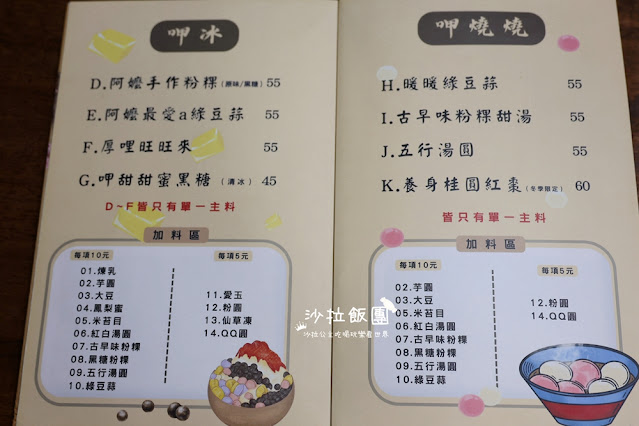 呷冰
D.阿嬤手作粉粿(原味/黑糖) 55
E.阿嬤最愛a綠豆蒜 55
F.厚哩旺旺來 55
G.呷甜甜蜜黑糖(清冰) 45
D~F皆只有單一主料
加料區
每項10元
01.煉乳
02.芋圓
03.大豆
04.鳳梨蜜
05.米苔目
06.紅白湯圓
07.古早味粉粿
08.黑糖粉粿
09.五行湯圓
10.綠豆蒜
每項5元
11.愛玉
12.粉圓
13.仙草凍
14.QQ圓
呷燒燒
H.暖暖綠豆蒜 55
I.古早味粉粿甜湯 55
J.五行湯圓 55
K.養身桂圓紅棗(冬季限定) 60
皆只有單一主料
加料區
每項10元
02.芋圓
03.大豆
05.米苔目
06.紅白湯圓
07.古早味粉粿
08.黑糖粉粿
09.五行湯圓
10.綠豆蒜
每項5元
12.粉圓
14.QQ圓
沙拉飯團
沙拉公主吃喝玩樂看世界